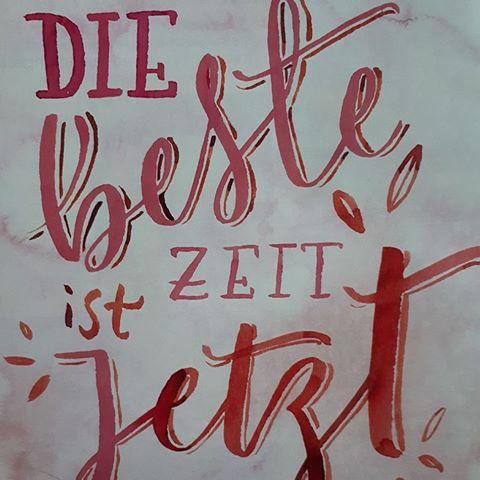 DIE
beste
ZEIT
ist
jetzt